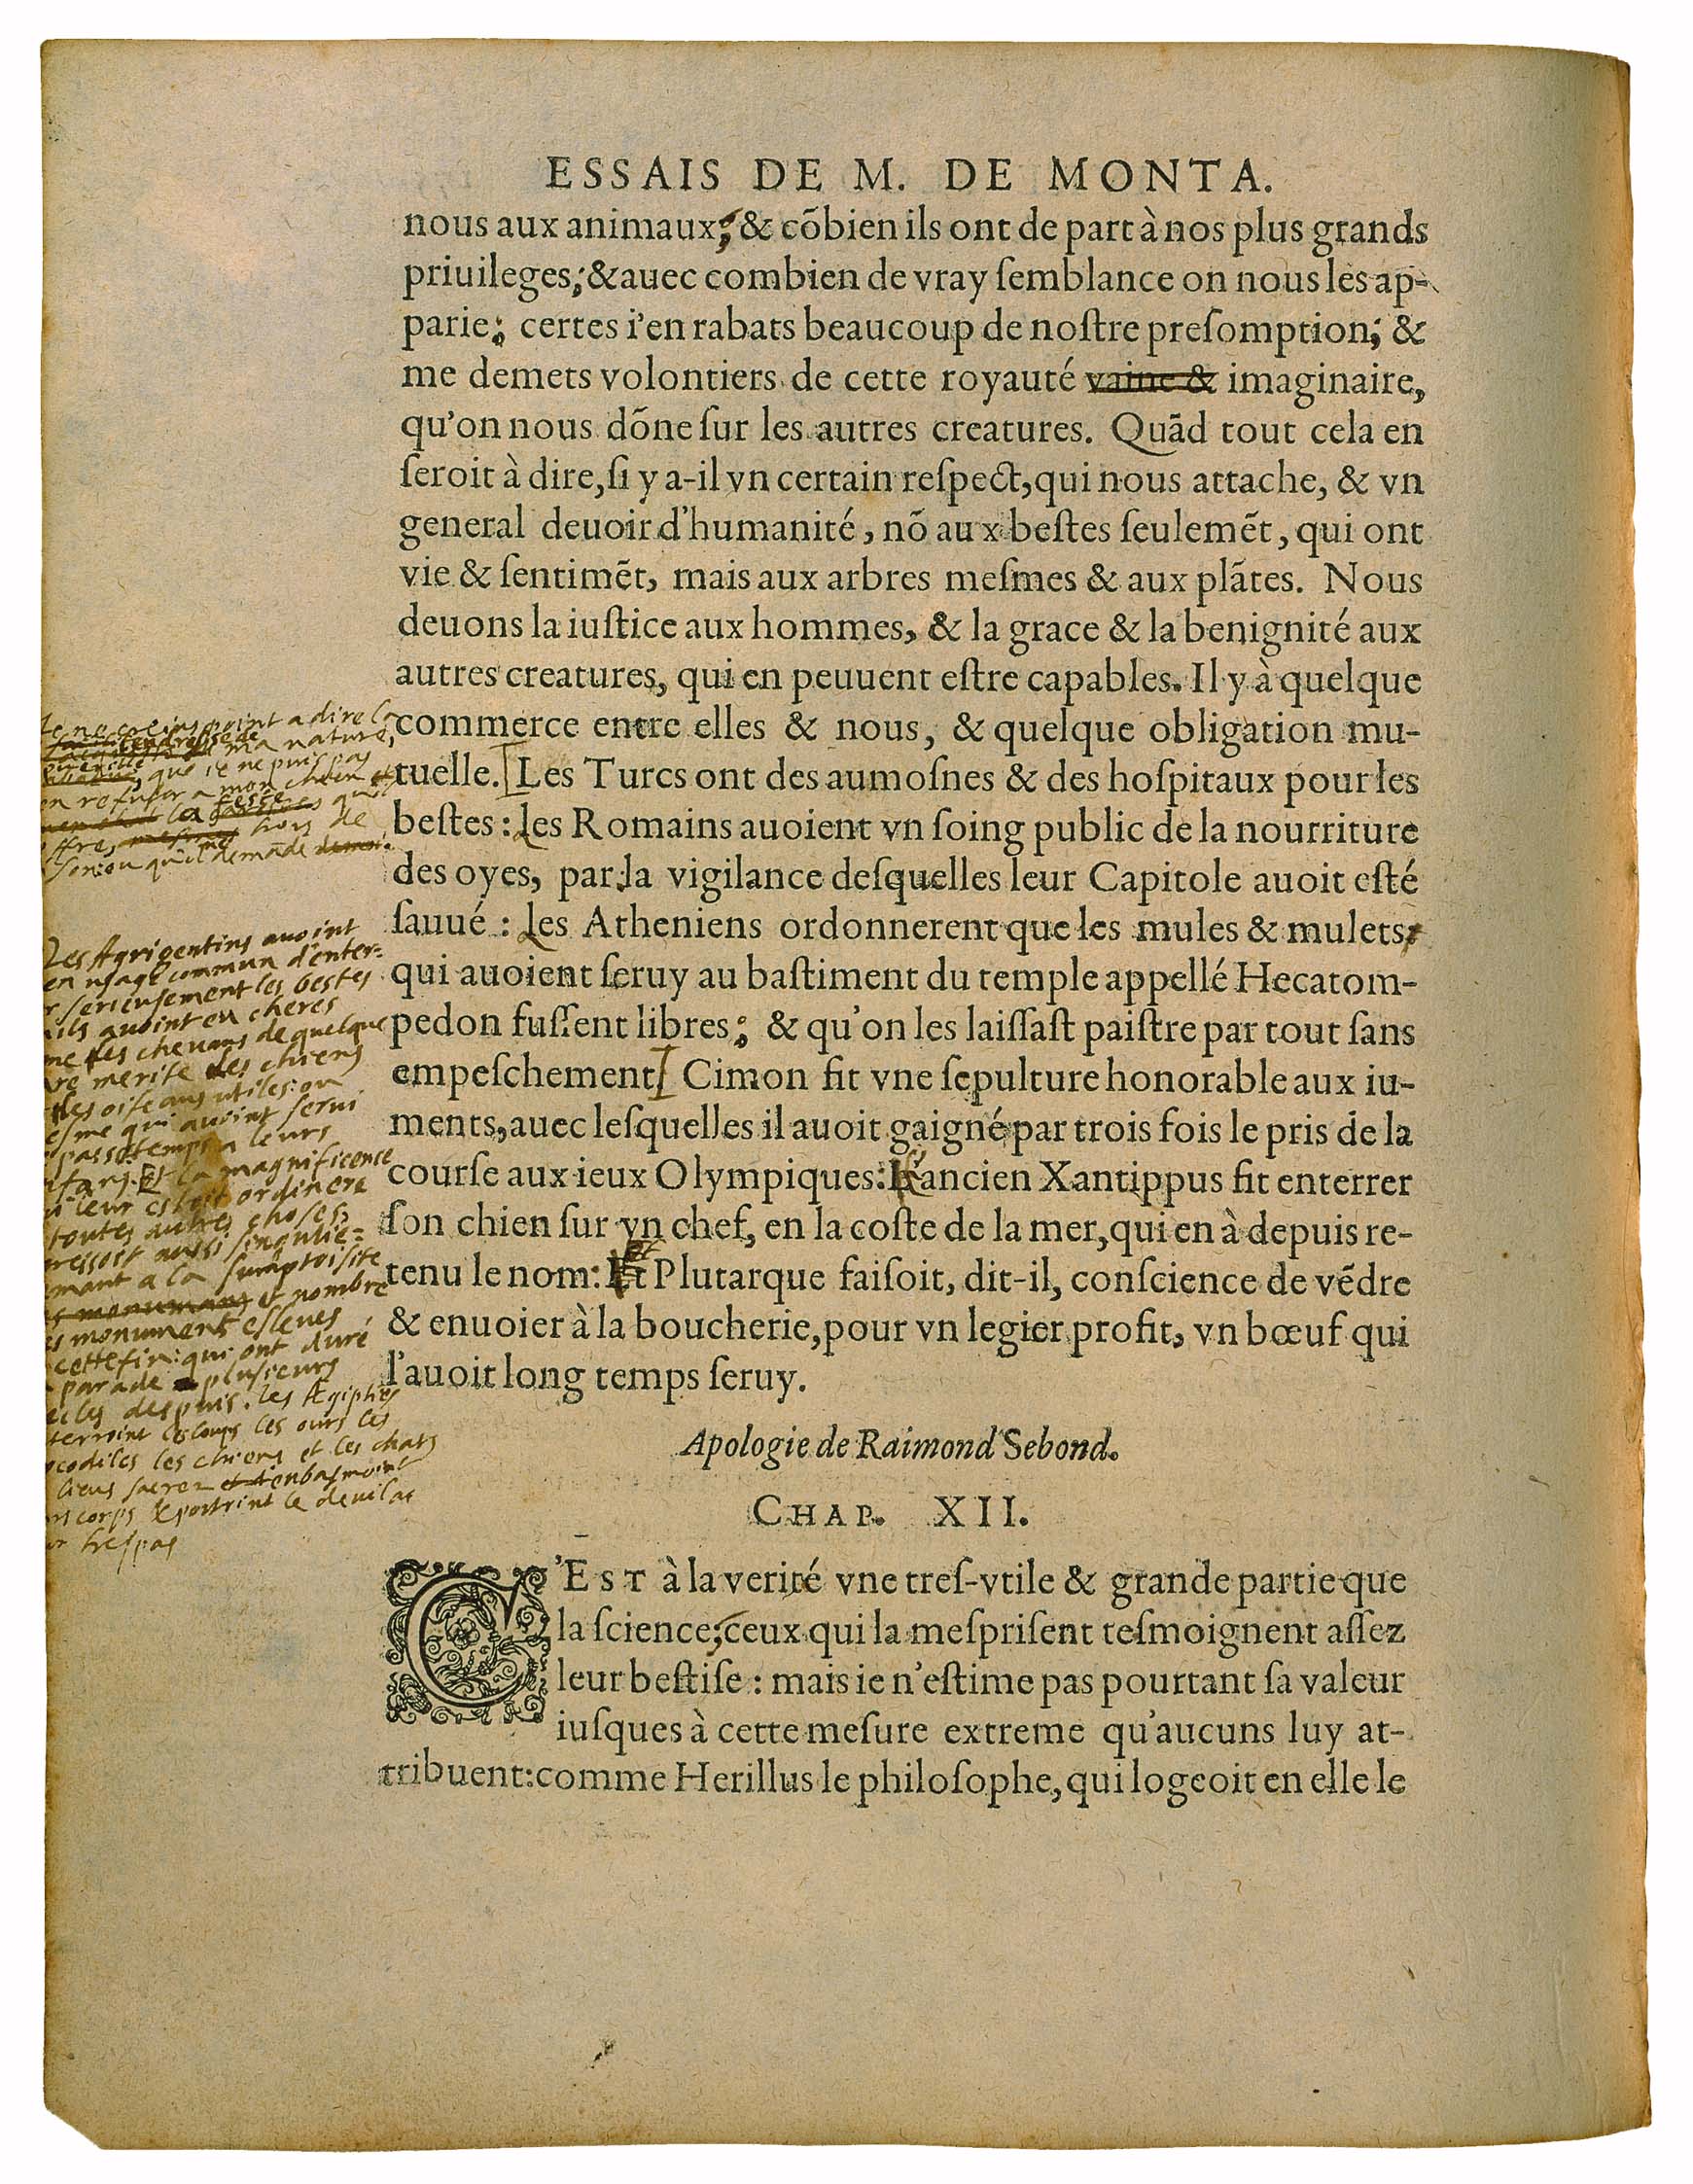 ESSAIS DE M. DE MONTA.
nous aux animaux; & cõbien ils ont de part à nos plus grands
priuileges; & auec combien de vray ſemblance on nous les ap-
parie; certes i'en rabats beaucoup de noſtre preſomption; &
me demets volontiers de cette royauté vaine & imaginaire,
qu'on nous dõne ſur les autres creatures. Quãd tout cela en
ſeroit à dire, ſi y a-il vn certain reſpect, qui nous attache, & vn
general deuoir d'humanité, nõ aux beſtes ſeulemẽt, qui ont
vie & ſentimẽt, mais aux arbres meſmes & aux plãtes. Nous
deuons la iuſtice aux hommes, & la grace & la benignité aux
autres creatures, qui en peuuent eſtre capables. Il y à quelque
commerce entre elles & nous, & quelque obligation mu-
tuelle. Les Turcs ont des aumoſnes & des hoſpitaux pour les
beſtes: les Romains auoient vn ſoing public de la nourriture
des oyes, par la vigilance deſquelles leur Capitole auoit eſté
ſauué: les Atheniens ordonnerent que les mules & mulets,
qui auoient ſeruy au baſtiment du temple appellé Hecatom-
pedon fuſſent libres; & qu'on les laiſſaſt paiſtre par tout ſans
empeſchement. Cimon fit vne ſepulture honorable aux iu-
ments, auec leſquelles il auoit gaigné par trois fois le pris de la
courſe aux ieux Olympiques: L'ancien Xantippus fit enterrer
ſon chien ſur vn chef, en la coſte de la mer, qui en à depuis re-
tenu le nom: Et Plutarque faiſoit, dit-il, conſcience de vẽdre
& enuoier à la boucherie, pour vn legier profit, vn bœuf qui
l'auoit long temps ſeruy.
Apologie de Raimond Sebond.
CHAP. XII.
C'EST à la verité vne treſ-vtile & grande partie que
la ſcience; ceux qui la meſpriſent teſmoignent aſſez
leur beſtiſe: mais ie n'eſtime pas pourtant ſa valeur
iuſques à cette meſure extreme qu'aucuns luy at-
tribuent: comme Herillus le philoſophe, qui logeoit en elle le
Ie ne creins point a dire la
tendresse de ma nature,
que ie ne puis pas
refuser a mon chien
la feste qu'il
hors de
ou qu'il demãde
Les Agrigentins auoint
en usage commun d'enter-
serieusement les bestes
auoint eu cheres
les cheuaus de quelque
merite les chiens
les oiseaus utiles: ou
qui auoint serui
passetemps a leurs
Et la magnificence
leur estoit ordinere
toutes autres choses
aussi singulie-
a la sumptuosite
monumans et nombre
monuments esleues
cette fin: qui ont duré
parade plusieurs
despuis. Les Ægiptiẽs
les loups les ours les
les chiens et les chats
lieus sacrez enbasmoint
corps & portoint le deuil a
trespas